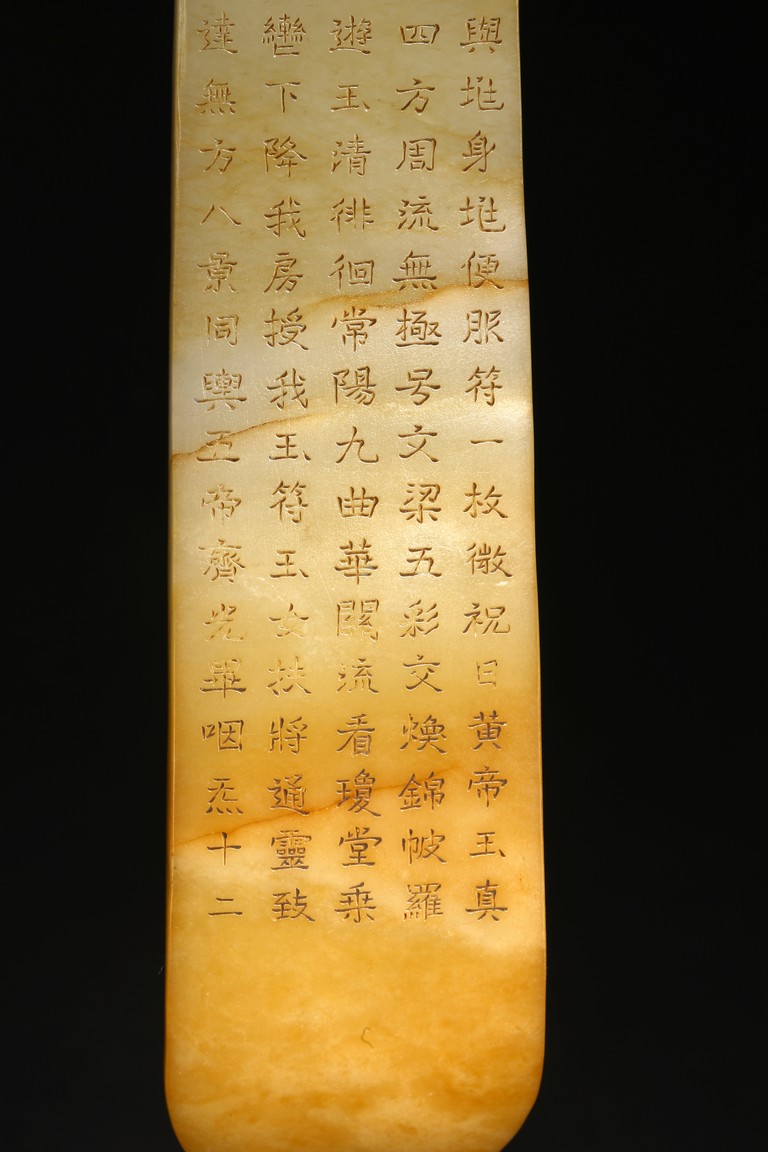 與堆身堆便服符一枚微祝曰黄帝玉真
四方周流無極号文梁五彩交煥錦帔羅
遊玉清徘徊常陽九曲華關流看瓊堂乗
下降我房授我玉符玉女扶將通靈致
達無方八景同輿五帝齊光畢咽炁十二